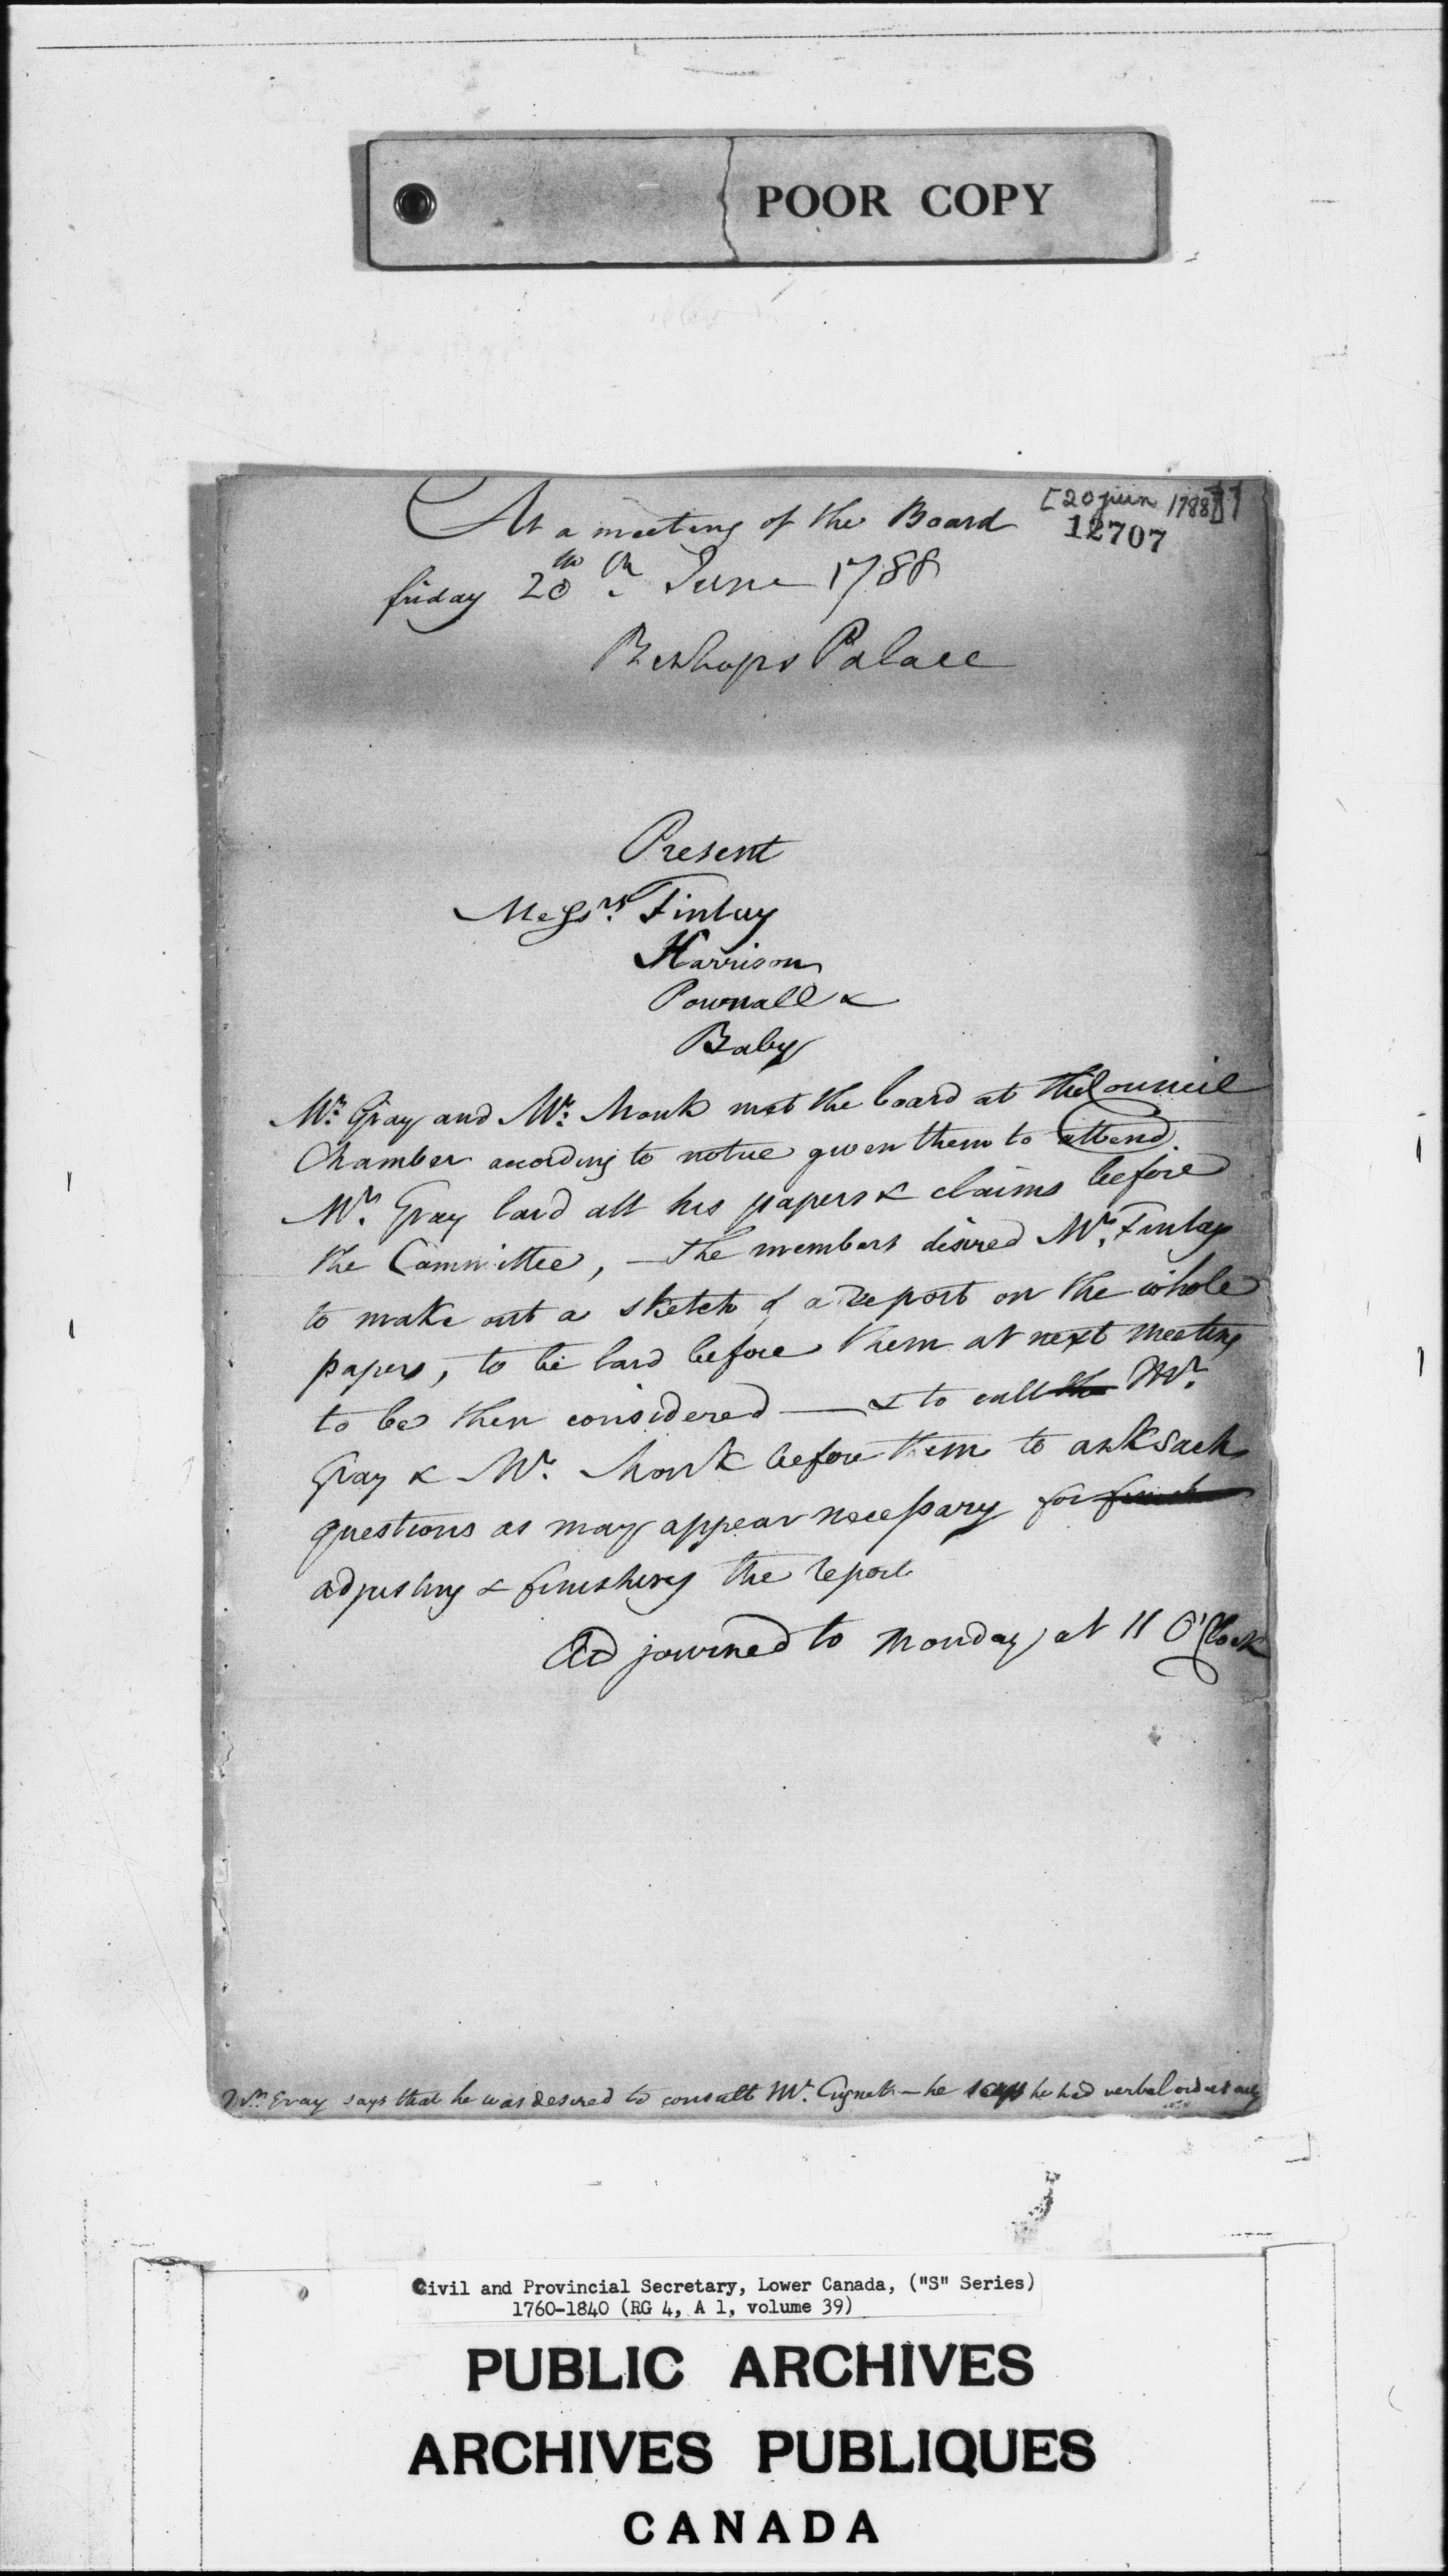 POOR COPY
[20 juin 1788]
12707
At a meeting of the Board
friday 20th June 1788
Bishops Palace
Present
Messrs. Finlay
Harrison
Pownall &
Baby
Mr. Gray and Mr. Monk met the board at the Council
Chamber according to notice given them to attend.
Mr. Gray laid all his papers & claims before
the Committee, — The members desired Mr. Finlay
to make out a sketch of a report on the whole
papers, to be laid before them at next meeting
to be then considered — & to call the Mr.
Gray & Mr. Monk before them to ask such
questions as may appear necessary for finish
adjusting & finishing the report
Adjourned to Monday at 11 O'Clock
Mr. Gray says that he was desired to consult Mr. Cugnet — he says he had verbal orders only
Civil and Provincial Secretary, Lower Canada, ("S" Series)
1760-1840 (RG 4, A 1, volume 39)
PUBLIC ARCHIVES
ARCHIVES PUBLIQUES
CANADA